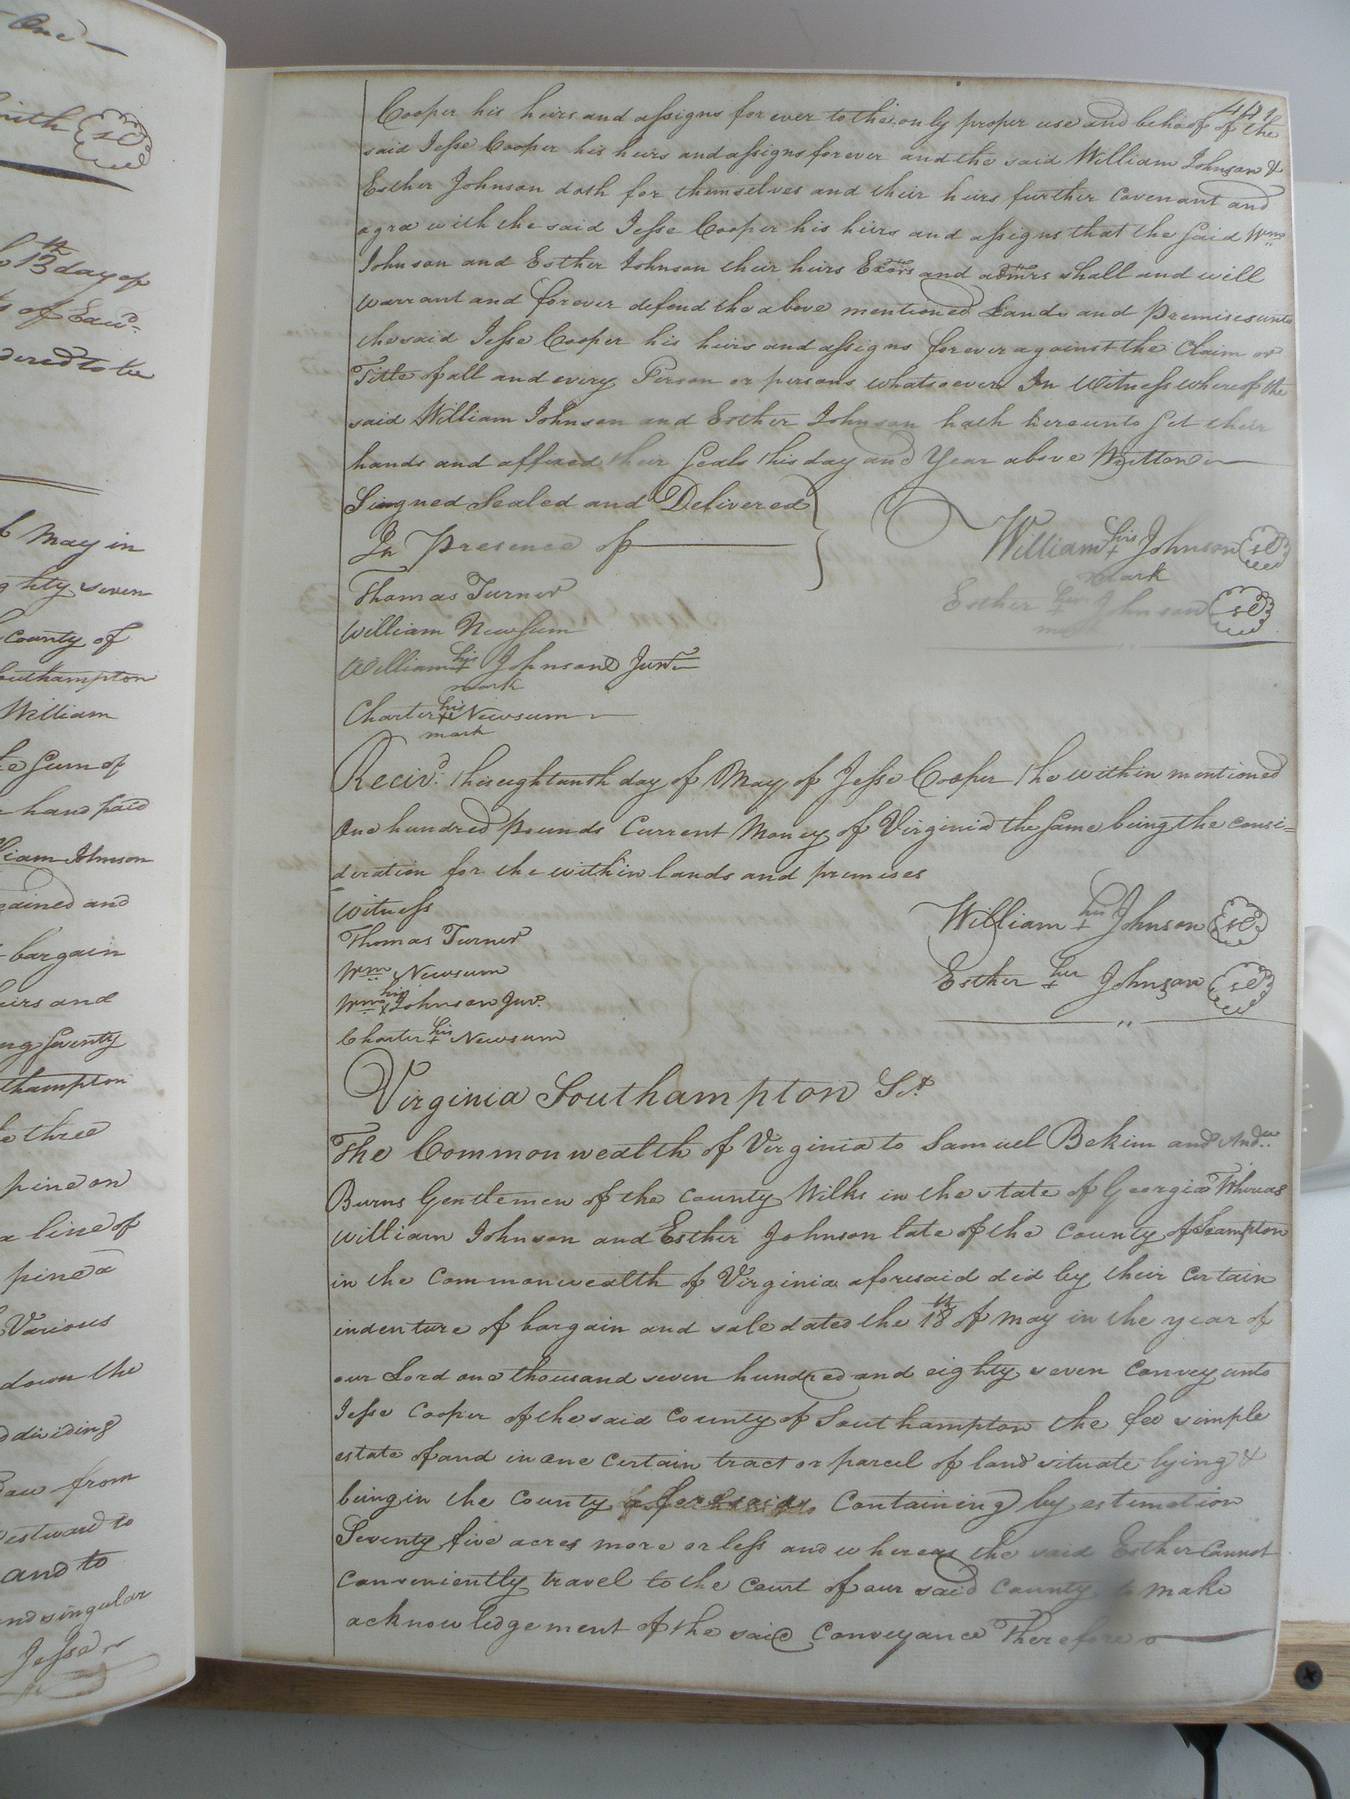 One —
Smith
13th day of
of Exec.
dered to be
of May in
ghty seven
County of
outhampton
William
te Sum of
hand paid
liam Johnson
ained and
bargain
eirs and
ng Seventy
thampton
e three
pine on
a line of
pine a
Various
down the
dividing
from
estward to
and to
nd singular
Jesse
Cooper his heirs and assigns for ever to the only proper use and behoof of the
said Jesse Cooper his heirs and assigns forever and the said William Johnson &
Esther Johnson doth for themselves and their heirs further Covenant and
agree with the said Jesse Cooper his heirs and assigns that the said Wm
Johnson and Esther Johnson their heirs Exors and admrs shall and will
warrant and forever defend the above mentioned Lands and Premises unto
the said Jesse Cooper his heirs and assigns forever against the Claim or
Title of all and every Person or persons whatsoever In Witness whereof the
said William Johnson and Esther Johnson hath hereunto set their
hands and affixed their Seals this day and Year above Written
Signed Sealed and Delivered
In Presence of
William his + mark Johnson
Esther her + Johnson
Thomas Turner
William Newsum
William his + mark Johnson Junr
Charter his + mark Newsum
Reciv'd this eightenth day of May of Jesse Cooper the within mentioned
One hundred pounds Current Money of Virginia the same being the consi=
deration for the within lands and premises
Witness
William his + Johnson
Thomas Turner
Wm Newsum
Esther her + Johnson
Wm his x Johnson Junr.
Charter his + Newsum
Virginia Southampton Sct
The Commonwealth of Virginia to Samuel Bekim and Andw
Burns Gentlemen of the County Wilks in the state of Georgia Whereas
William Johnson and Esther Johnson late of the County of Shampton
in the Commonwealth of Virginia aforesaid did by their certain
indenture of bargain and sale dated the 18th of May in the year of
our Lord one thousand seven hundred and eighty seven Convey unto
Jesse Cooper of the said County of Southampton the fee simple
estate of and in one certain tract or parcel of land situate lying &
being in the County aforesaid Containing by estimation
Seventy five acres more or less and whereas the said Esther Cannot
conveniently travel to the Court of our said County to make
acknowledgement of the said Conveyance Therefore